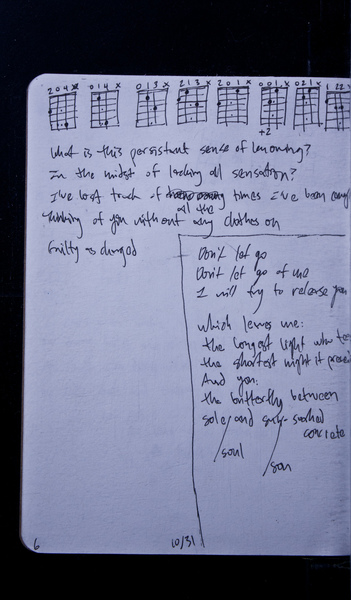 2 0 4 x 0 1 4 x 0 1 3 x 2 1 3 x 2 0 1 x 0 0 1 x 0 2 1 x 1 2 2
+2
What is this persistant sense of knowing?
In the midst of lacking all sensation?
I've lost track of times I've been
all the
thinking of you without any clothes on
Guilty as charged
Don't let go
Don't let go of me
I will try to release you
which leaves me:
the longest light who
the shortest night it
And you:
the butterfly between
sole/and sun-soaked
concrete
/soul
/son
6
10/31